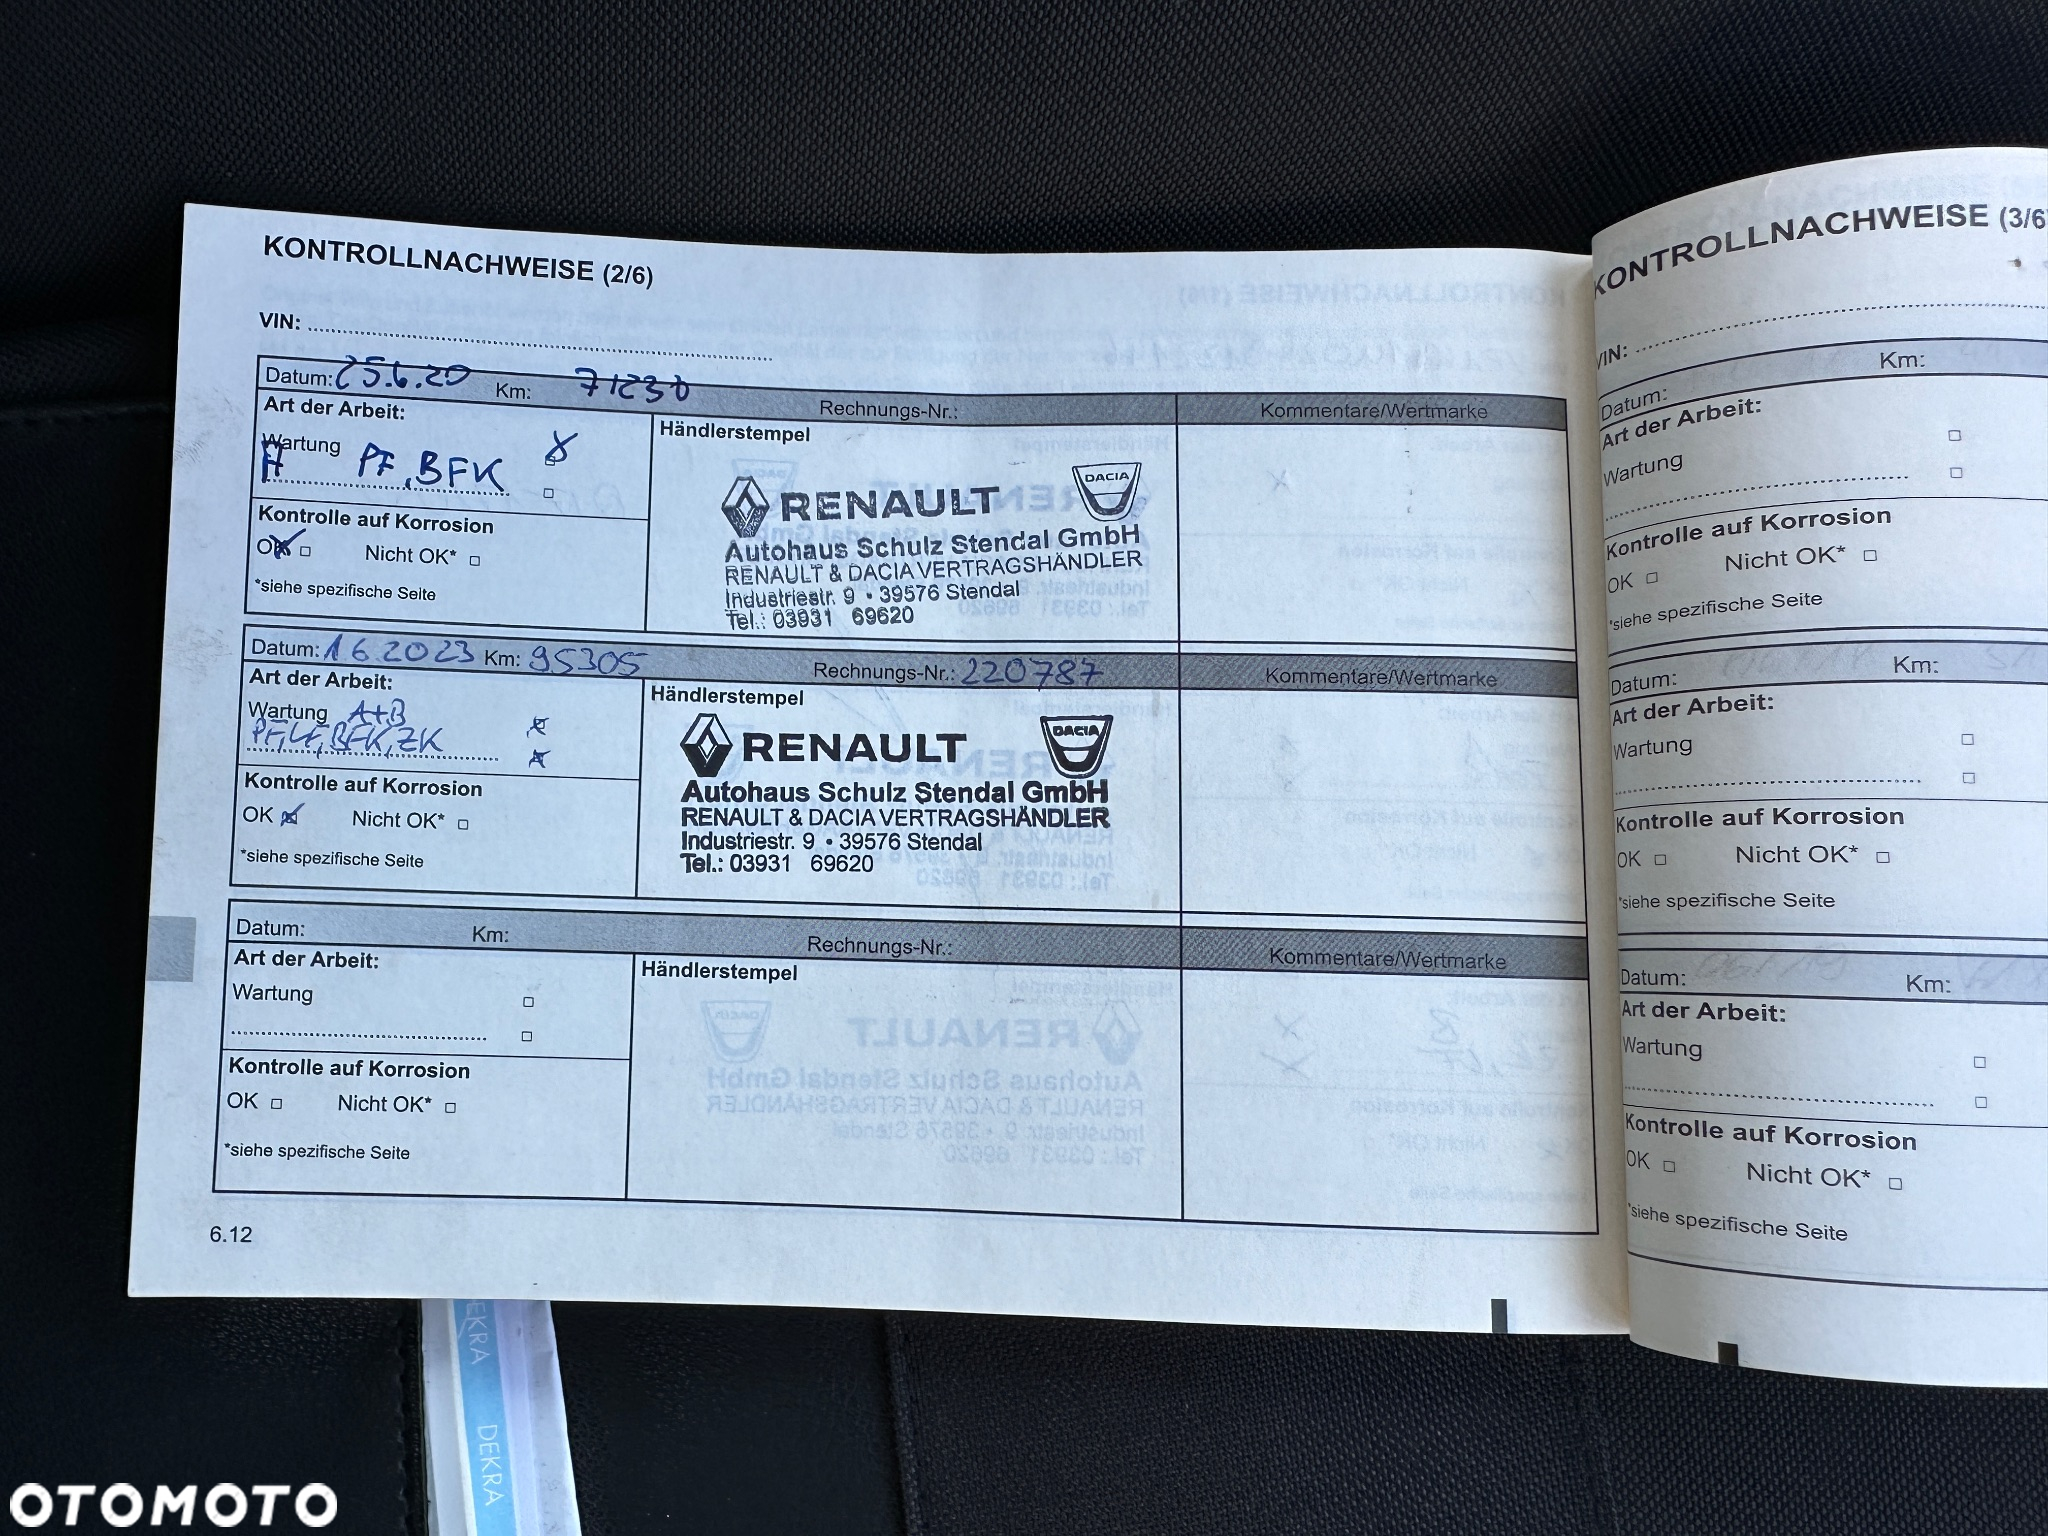 KONTROLLNACHWEISE (2/6)
VIN:
Datum: 25.6.20 Km: 71230 Rechnungs-Nr.: Kommentare/Wertmarke
Art der Arbeit:
Wartung
A PF, BFK
Kontrolle auf Korrosion
OK Nicht OK*
*siehe spezifische Seite
Händlerstempel
RENAULT DACIA
Autohaus Schulz Stendal GmbH
RENAULT & DACIA VERTRAGSHÄNDLER
Industriestr. 9 • 39576 Stendal
Tel.: 03931 69620
Datum: 1 6.2023 Km: 95305 Rechnungs-Nr.: 220787 Kommentare/Wertmarke
Art der Arbeit:
Wartung A+B
PF, LF, BFK, ZK
Kontrolle auf Korrosion
OK Nicht OK*
*siehe spezifische Seite
Händlerstempel
RENAULT DACIA
Autohaus Schulz Stendal GmbH
RENAULT & DACIA VERTRAGSHÄNDLER
Industriestr. 9 • 39576 Stendal
Tel.: 03931 69620
Datum: Km: Rechnungs-Nr.: Kommentare/Wertmarke
Art der Arbeit:
Wartung
Kontrolle auf Korrosion
OK Nicht OK*
*siehe spezifische Seite
Händlerstempel
6.12
KONTROLLNACHWEISE (3/6)
VIN:
Datum: Km:
Art der Arbeit:
Wartung
Kontrolle auf Korrosion
OK Nicht OK*
*siehe spezifische Seite
Datum: Km:
Art der Arbeit:
Wartung
Kontrolle auf Korrosion
OK Nicht OK*
*siehe spezifische Seite
Datum: Km:
Art der Arbeit:
Wartung
Kontrolle auf Korrosion
OK Nicht OK*
*siehe spezifische Seite
DEKRA
DEKRA
OTOMOTO